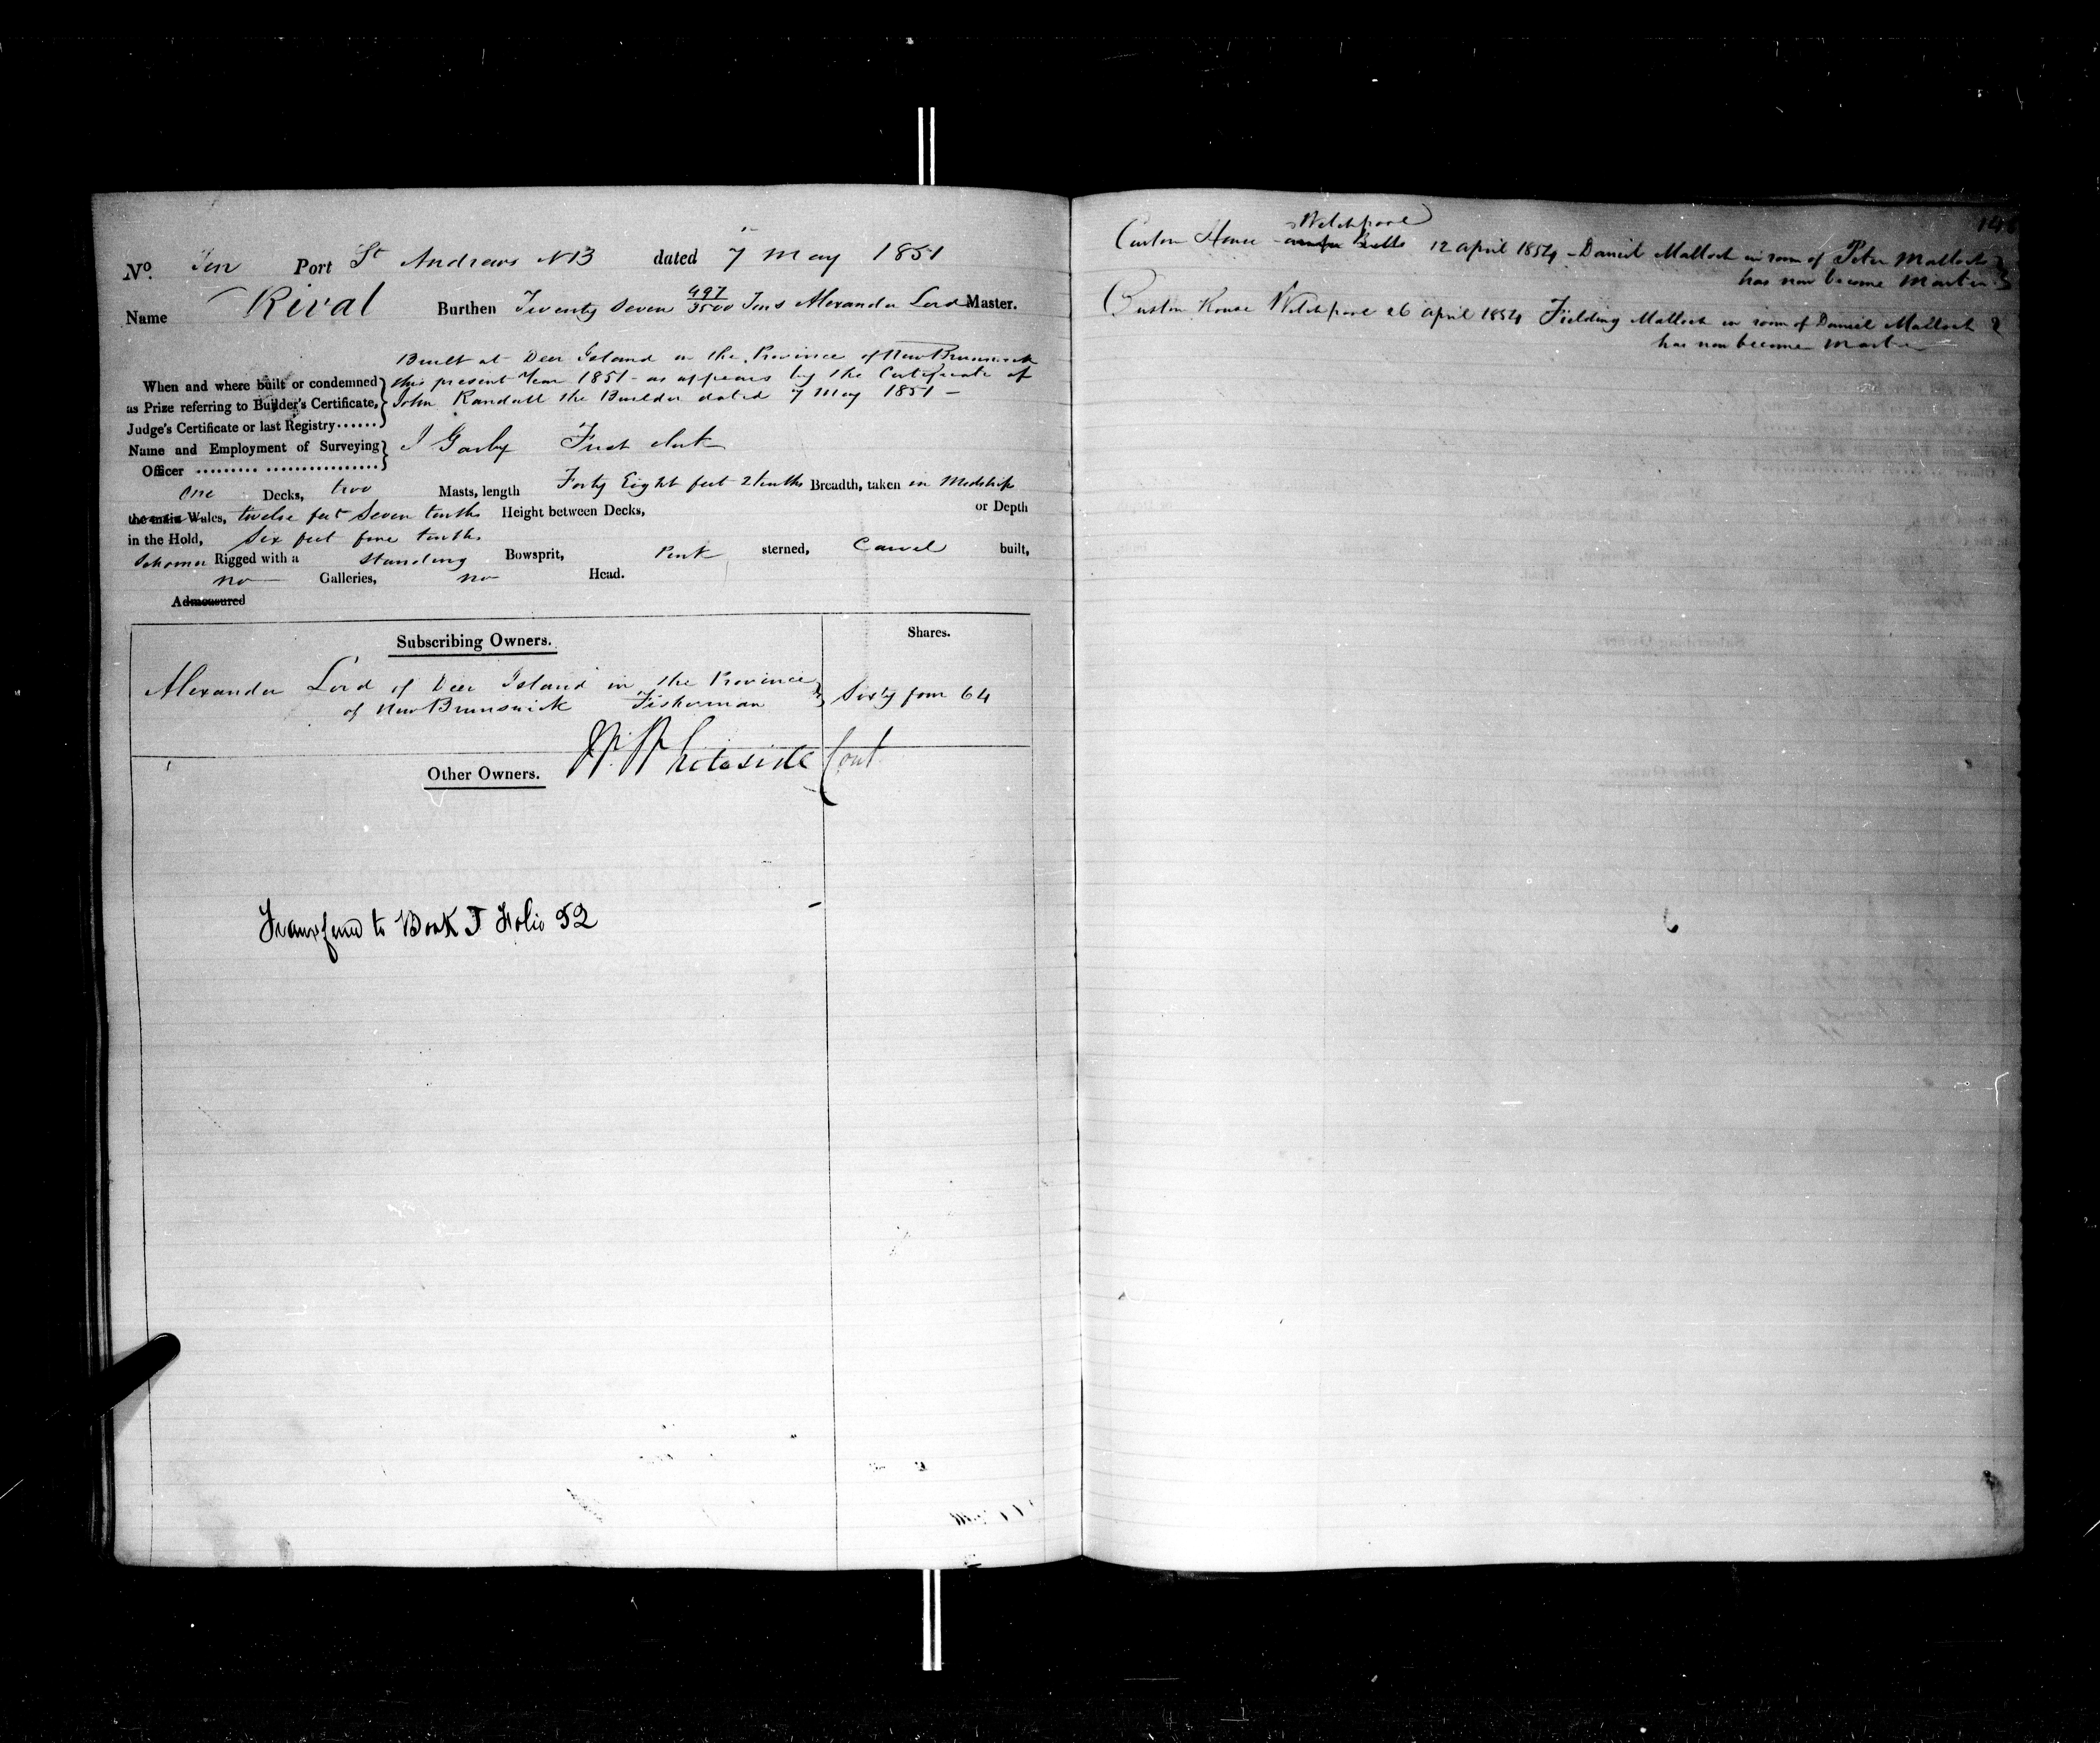 No. Ten Port St Andrews NB dated 7 May 1851
Name Rival Burthen Twenty Seven 497/3500 Tons Alexander Lord Master.
Built at Deer Island in the Province of New Brunswick
When and where built or condemned this present Year 1851 - as appears by the Certificate of
as Prize referring to Builder's Certificate, John Randall the Builder dated 7 May 1851 -
Judge's Certificate or last Registry......
Name and Employment of Surveying
Officer ......... ................ First Clerk
One Decks, two Masts, length Forty Eight feet 2 tenths Breadth, taken in Midships
the main Wales, twelve feet Seven tenths Height between Decks, or Depth
in the Hold, Six feet five tenths
Schooner Rigged with a Standing Bowsprit, Pink sterned, Carvel built,
no Galleries, no Head.
Admeasured
Subscribing Owners. Shares.
Alexander Lord of Deer Island in the Province
of New Brunswick Fisherman Sixty four 64
Other Owners. Whitesides Cont
Transferred to Book J Folio 52
Welchpool
Custom House 12 April 1854 - Daniel Malloch in room of Peter Malloch
has now become Master
Custom House Welchpool 26 April 1854 Fielding Malloch in room of Daniel Malloch
has now become Master